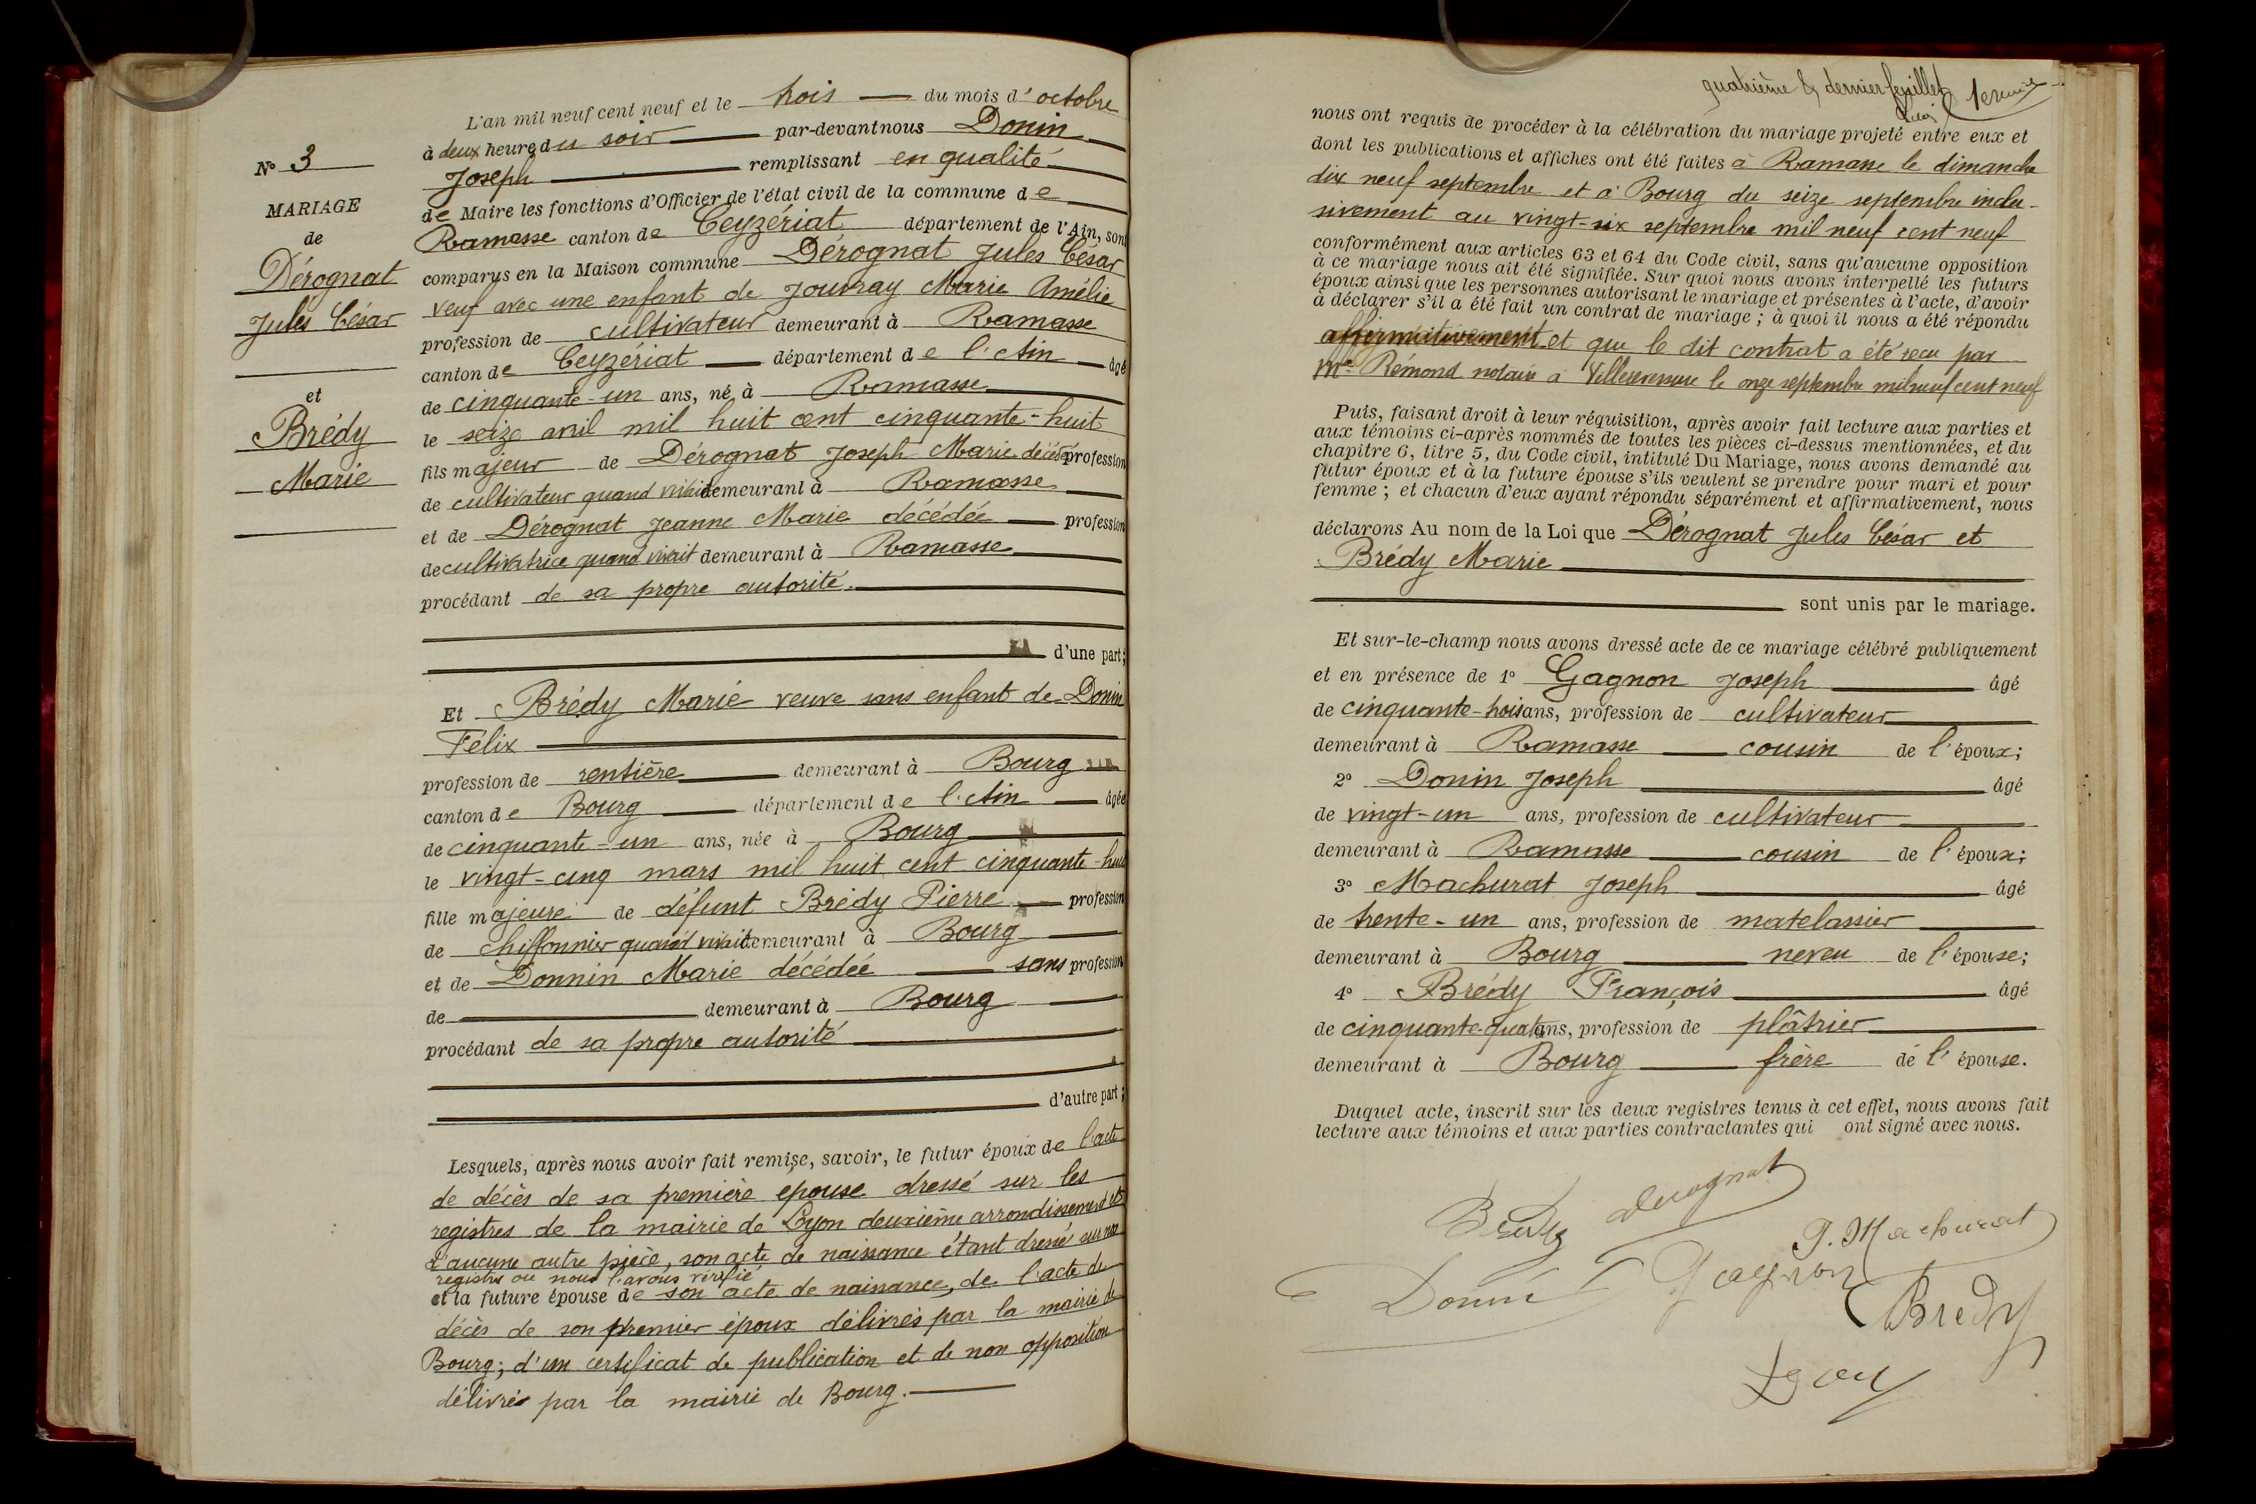 N° 3
MARIAGE
de
Dérognat
Jules César
et
Brédy
Marie
L'an mil neuf cent neuf et le trois du mois d'octobre
à deux heures du soir par-devant nous Donin
Joseph remplissant en qualité
de Maire les fonctions d'Officier de l'état civil de la commune de
Ramasse canton de Ceyzériat département de l'Ain, sont
comparus en la Maison commune Dérognat Jules César
veuf avec une enfant de Jouvray Marie Amélie
profession de cultivateur demeurant à Ramasse
canton de Ceyzériat département de l'Ain âgé
de cinquante-un ans, né à Ramasse
le seize avril mil huit cent cinquante-huit
fils majeur de Dérognat Joseph Marie décédé profession
de cultivateur quand vivait demeurant à Ramasse
et de Dérognat Jeanne Marie décédée profession
de cultivatrice quand vivait demeurant à Ramasse
procédant de sa propre autorité.
d'une part;
Et Brédy Marie veuve sans enfant de Donin
Félix
profession de rentière demeurant à Bourg
canton de Bourg département de l'Ain âgée
de cinquante-un ans, née à Bourg
le vingt-cinq mars mil huit cent cinquante-huit
fille majeure de défunt Brédy Pierre profession
de chiffonnier quand vivait demeurant à Bourg
et de Donnin Marie décédée sans profession
de demeurant à Bourg
procédant de sa propre autorité
d'autre part;
Lesquels, après nous avoir fait remise, savoir, le futur époux de l'acte
de décès de sa première épouse dressé sur les
registres de la mairie de Lyon deuxième arrondissement et
d'aucune autre pièce, son acte de naissance étant dressé sur nos
registres où nous l'avons vérifié
et la future épouse de son acte de naissance, de l'acte de
décès de son premier époux délivrés par la mairie de
Bourg; d'un certificat de publication et de non opposition
délivrés par la mairie de Bourg.
quatrième & dernier feuillet
nous ont requis de procéder à la célébration du mariage projeté entre eux et
dont les publications et affiches ont été faites à Ramasse le dimanche
dix neuf septembre et à Bourg du seize septembre inclu-
sivement au vingt-six septembre mil neuf cent neuf
conformément aux articles 63 et 64 du Code civil, sans qu'aucune opposition
à ce mariage nous ait été signifiée. Sur quoi nous avons interpellé les futurs
époux ainsi que les personnes autorisant le mariage et présentes à l'acte, d'avoir
à déclarer s'il a été fait un contrat de mariage; à quoi il nous a été répondu
affirmativement et que le dit contrat a été reçu par
Me Rémond notaire à Villereversure le onze septembre mil neuf cent neuf
Puis, faisant droit à leur réquisition, après avoir fait lecture aux parties et
aux témoins ci-après nommés de toutes les pièces ci-dessus mentionnées, et du
chapitre 6, titre 5, du Code civil, intitulé Du Mariage, nous avons demandé au
futur époux et à la future épouse s'ils veulent se prendre pour mari et pour
femme; et chacun d'eux ayant répondu séparément et affirmativement, nous
déclarons Au nom de la Loi que Dérognat Jules César et
Brédy Marie
sont unis par le mariage.
Et sur-le-champ nous avons dressé acte de ce mariage célébré publiquement
et en présence de 1° Gagnon Joseph âgé
de cinquante-trois ans, profession de cultivateur
demeurant à Ramasse cousin de l'époux;
2° Donin Joseph âgé
de vingt-un ans, profession de cultivateur
demeurant à Ramasse cousin de l'époux;
3° Machurat Joseph âgé
de trente-un ans, profession de matelassier
demeurant à Bourg neveu de l'épouse;
4° Brédy François âgé
de cinquante-quatre ans, profession de plâtrier
demeurant à Bourg frère de l'épouse.
Duquel acte, inscrit sur les deux registres tenus à cet effet, nous avons fait
lecture aux témoins et aux parties contractantes qui ont signé avec nous.
Derognat
Bredy
J. Machurat
Gagnon
Donin
Bredy